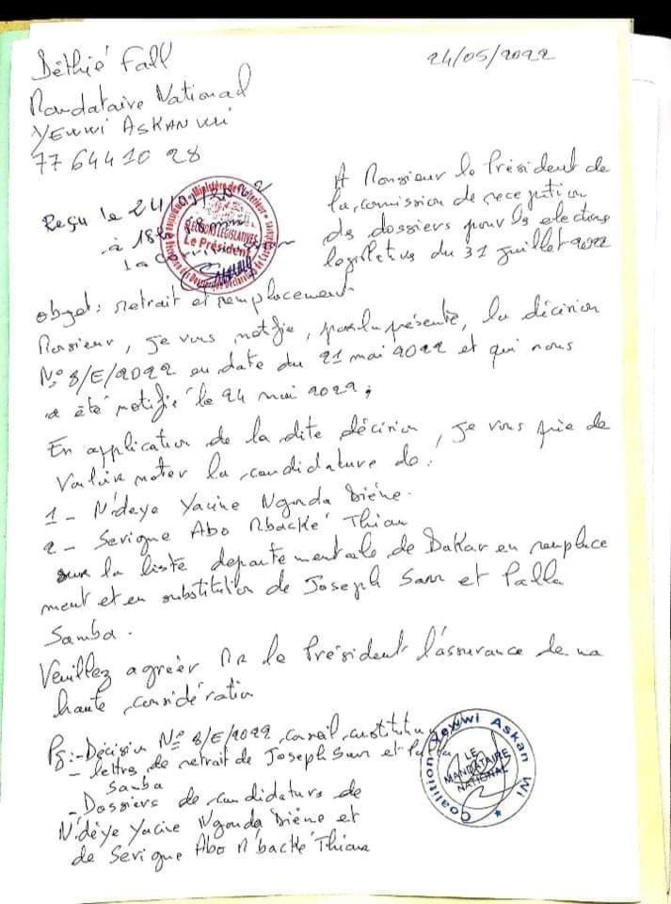 Déthié Fall
24/05/2022
Mandataire National
YEWWI ASKAN WI
77 644 10 28
A Monsieur le Président de
la comission de reception
des dossiers pour les elections
legislatives du 31 juillet 2022
Reçu le 24/05/2022
à 18h
ELECTIONS LEGISLATIVES
Le Président
objet: retrait et remplacement
Monsieur, je vous notifie, par la présente, la décision
N° 8/E/2022 en date du 21 mai 2022 et qui nous
a été notifié le 24 mai 2022;
En application de la dite décision, je vous prie de
Vouloir noter la candidature de:
1 - Ndeye Yacine Ngonda Diène.
2 - Serigne Abo Mbacké Thiam
sur la liste departementale de Dakar en remplace
ment et en substitution de Joseph Sarr et Palla
Samba.
Veuillez agréer Mr le Président l'assurance de ma
haute considération
PS:- Décision N° 8/E/2022 conseil constitution
- lettres de retrait de Joseph Sarr et Palla
Samba
- Dossiers de candidature de
N'dèye Yacine Ngonda Diène et
de Serigne Abo M'backé Thiam
Coalition Yewwi Askan Wi
LE
MANDATAIRE
NATIONAL